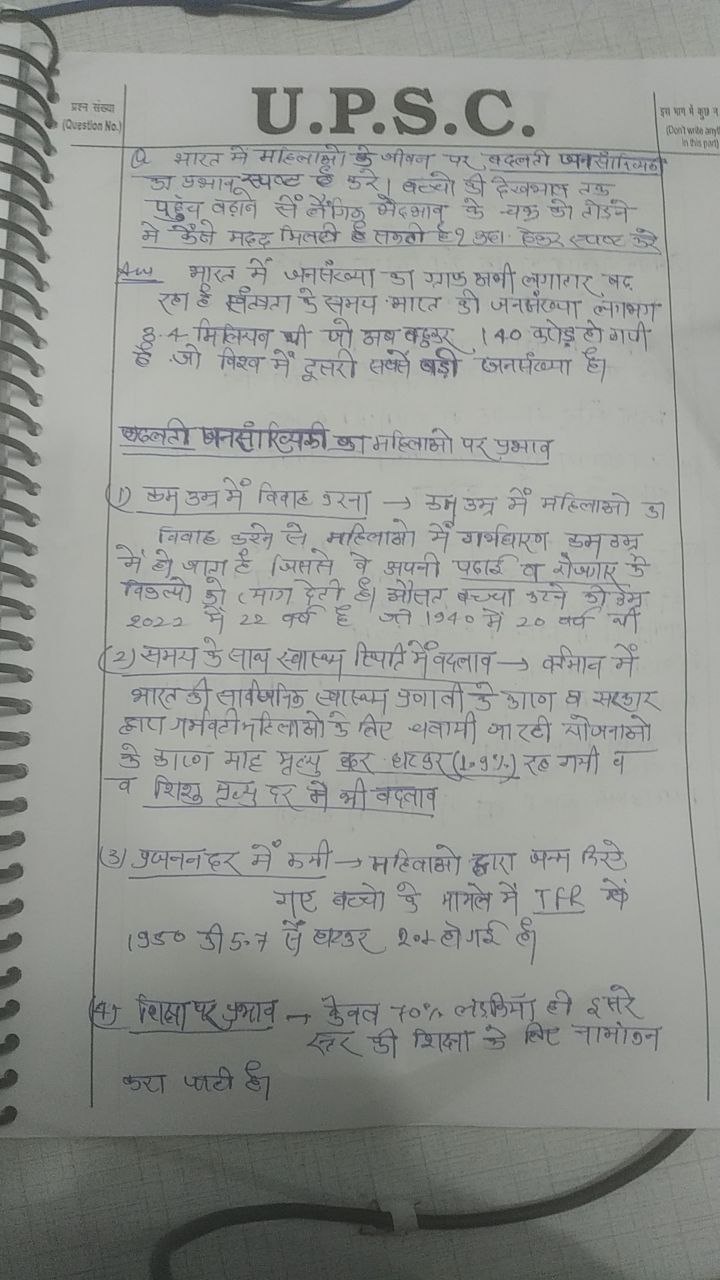 प्रश्न संख्या
(Question No.)
U.P.S.C.
इस भाग में कुछ न
(Don't write anyt
in this part)
Q भारत में महिलाओं के जीवन पर बदलती जनसांख्यिकी
का प्रभाव स्पष्ट करे। बच्चो की देखभाल तक
पहुंच बढ़ाने से लैंगिक भेदभाव के चक्र को तोडने
मे कैसे मदद मिलती है सकती है? उदा. देकर स्पष्ट करे
Ans भारत में जनसंख्या का ग्राफ अभी लगातार बढ़
रहा है स्वंत्रता के समय भारत की जनसंख्या लगभग
3.4 मिलियन थी जो अब बढ़कर 140 करोड़ हो गयी
है जो विश्व में दूसरी सबसे बड़ी जनसंख्या है।
बदलती जनसांख्यिकी का महिलाओ पर प्रभाव
(1) कम उम्र में विवाह करना → कम उम्र में महिलाओ का
विवाह करने से महिलाओ में गर्भधारण कम उम्र
में हो जाता है जिससे वे अपनी पढाई व रोजगार के
विकल्पो को त्याग देती है। औसत बच्चा करने की उम्र
2022 में 22 वर्ष है जो 1940 में 20 वर्ष थी
(2) समय के साथ स्वास्थ्य स्थिति में बदलाव → वर्तमान में
भारत की सार्वजनिक स्वास्थ्य प्रणाली के कारण व सरकार
द्वारा गर्भवती महिलाओ के लिए चलायी जा रही योजनाओ
के कारण मातृ मृत्यु दर घटकर रह गयी व
व शिशु मृत्यु दर में भी बदलाव
(3) प्रजनन दर में कमी → महिलाओ द्वारा जन्म किये
गए बच्चो के मामले में TFR
1950 की 5.7 से घटकर हो गई है।
(4) शिक्षा पर प्रभाव → केवल 70% लडकियाँ ही दूसरे
स्तर की शिक्षा के लिए नामांकन
करा पाती है।